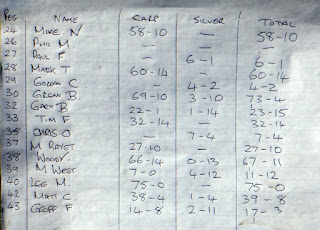 PEG NAME CARP SILVER TOTAL
24 MIKE N 58-10 — 58-10
26 PHIL M. — — —
27 PAUL F — 6-1 6-1
28 MARK T 60-14 — 60-14
29 GORDON C — 4-2 4-2
30 B. 69-10 3-10 73-4
32 GARY B. 22-1 1-14 23-15
33 TIM F 32-14 — 32-14
35 CHRIS O — 7-4 7-4
37 M 27-10 — 27-10
38 WOODY. 66-14 0-13 67-11
39 M WEST 7-0 4-12 11-12
40 LEE M. 75-0 — 75-0
42 MATT C 38-4 1-4 39-8
43 GEOFF F 14-8 2-11 17-3